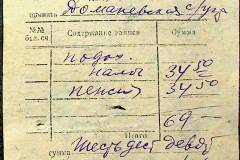 принять Доманевская с/упр
№№ бил. сч. Содержание записи Сумма
подох.
налог 34 50
пенсия 34 50
69 —
Итого
сумма Шестьдес девят